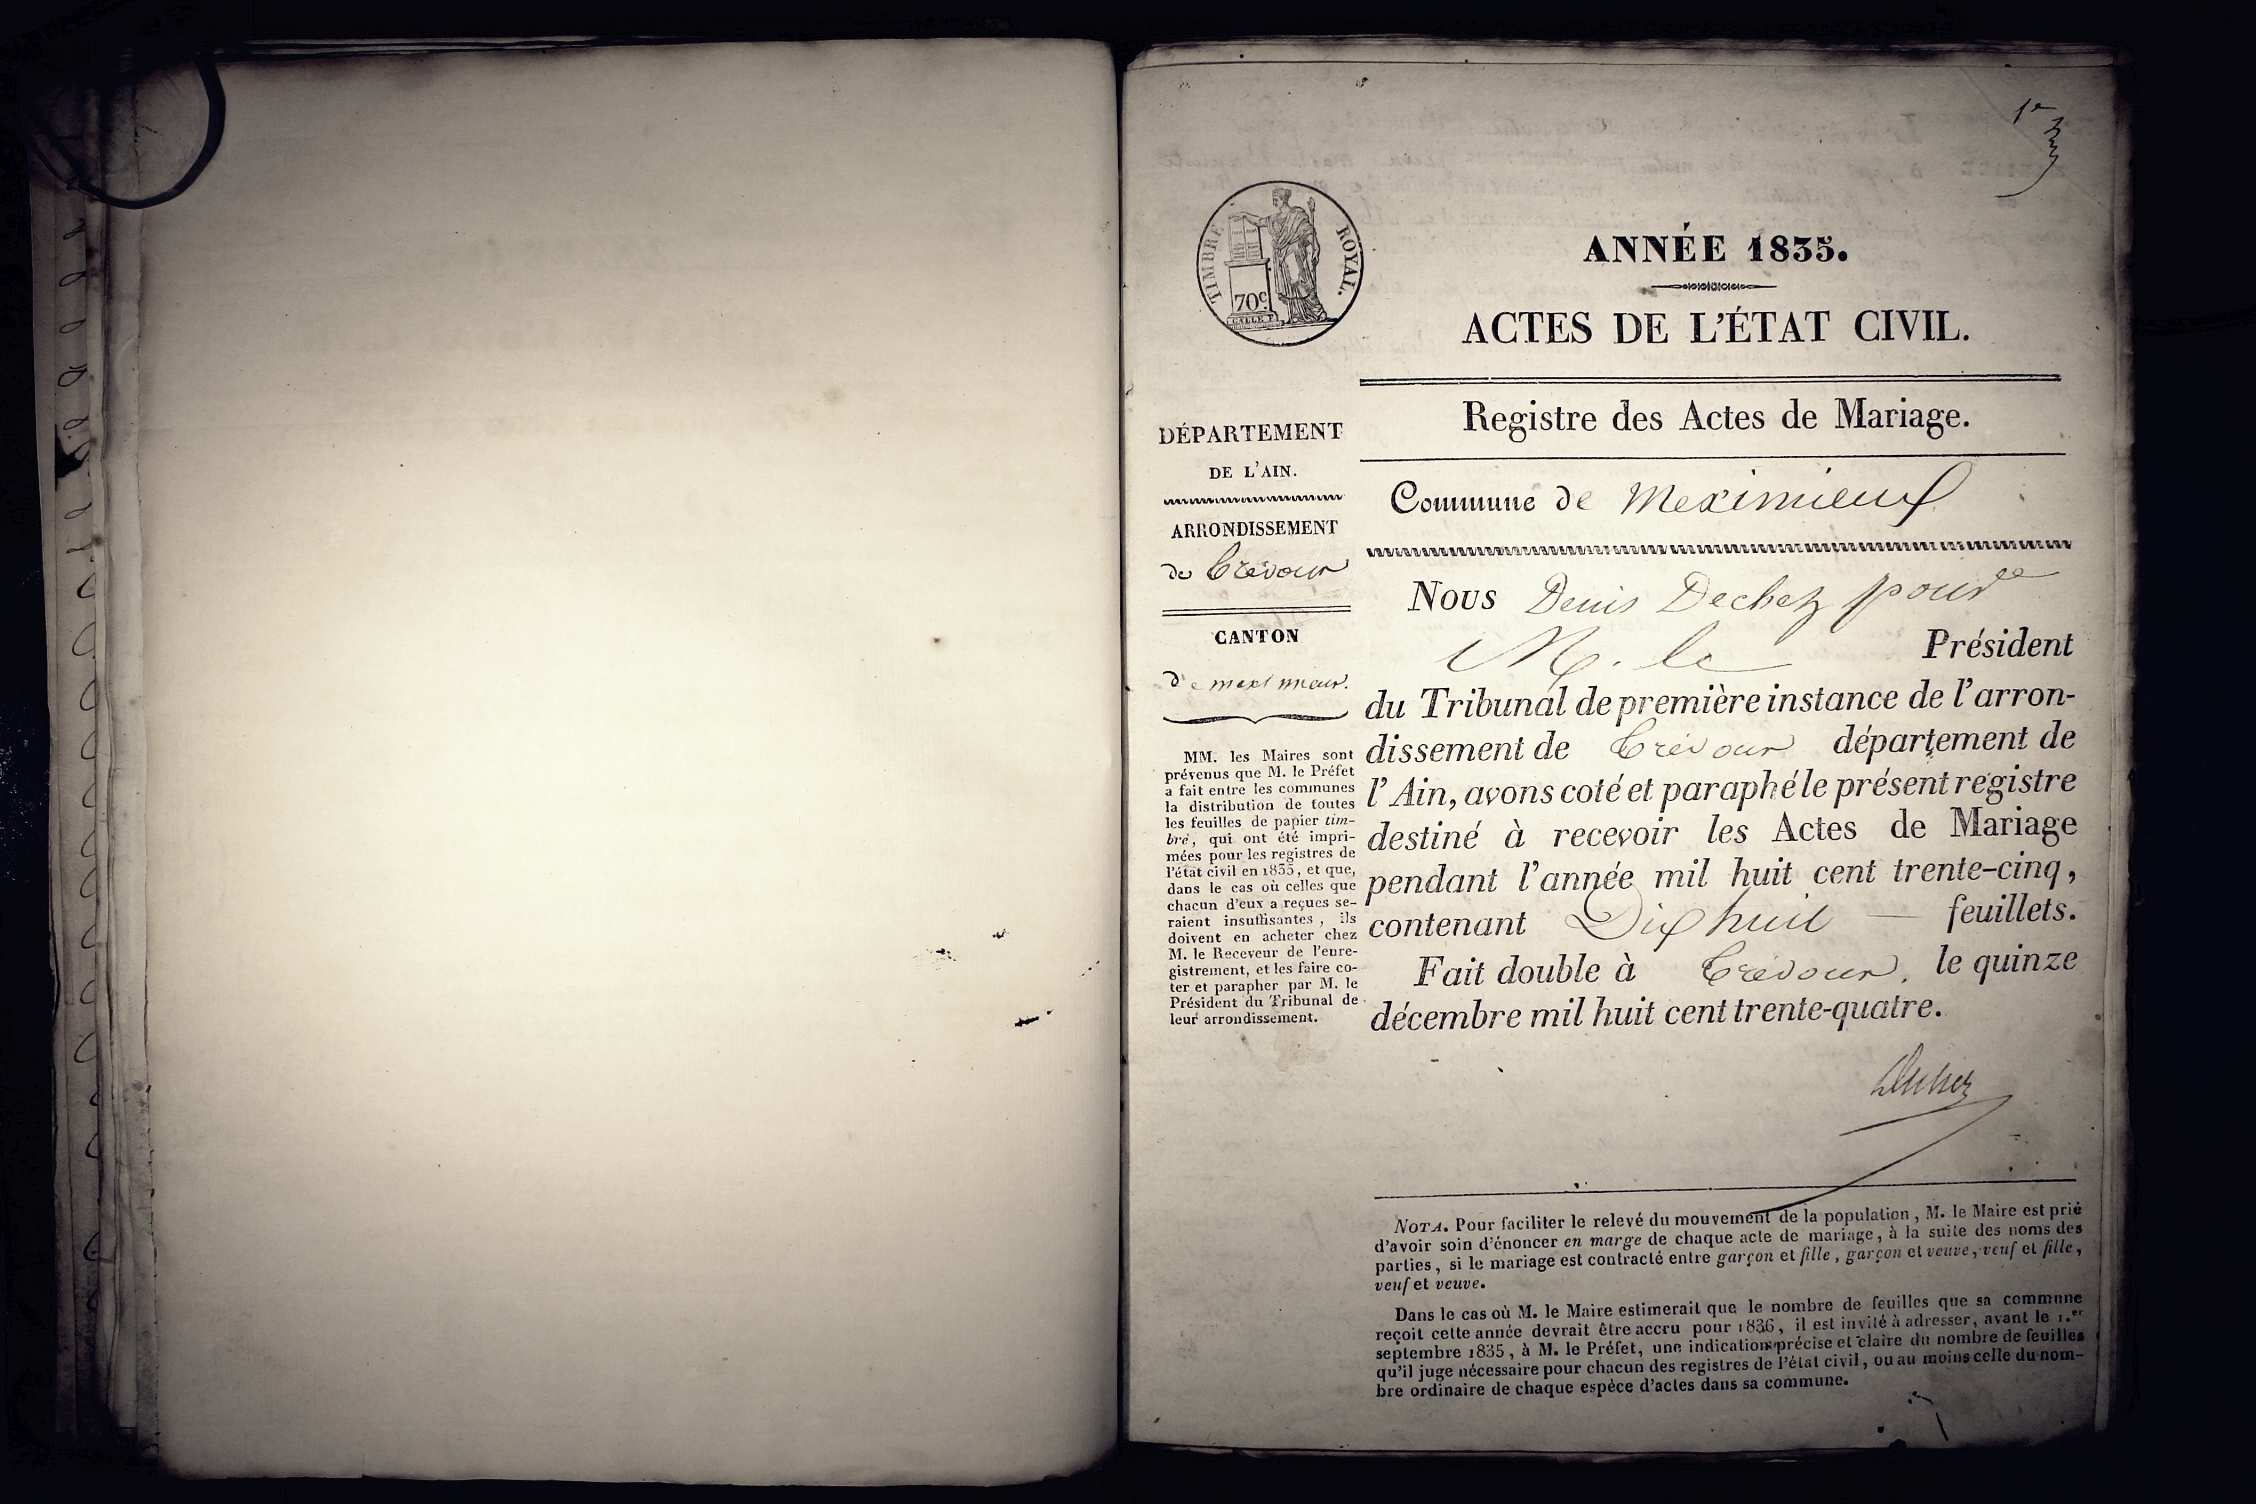 1er
TIMBRE ROYAL.
70c.
ANNÉE 1835.
ACTES DE L'ÉTAT CIVIL.
Registre des Actes de Mariage.
Commune de Meximieux
DÉPARTEMENT
DE L'AIN.
ARRONDISSEMENT
de Trévoux
CANTON
de meximieux.
MM. les Maires sont
prévenus que M. le Préfet
a fait entre les communes
la distribution de toutes
les feuilles de papier tim-
bré, qui ont été impri-
mées pour les registres de
l'état civil en 1835, et que,
dans le cas où celles que
chacun d'eux a reçues se-
raient insuffisantes, ils
doivent en acheter chez
M. le Receveur de l'enre-
gistrement, et les faire co-
ter et parapher par M. le
Président du Tribunal de
leur arrondissement.
Nous Denis Dechez pour
M. le Président
du Tribunal de première instance de l'arron-
dissement de Trévoux département de
l'Ain, avons coté et paraphé le présent registre
destiné à recevoir les Actes de Mariage
pendant l'année mil huit cent trente-cinq,
contenant Dix huit — feuillets.
Fait double à Trévoux, le quinze
décembre mil huit cent trente-quatre.
Dechez
NOTA. Pour faciliter le relevé du mouvement de la population, M. le Maire est prié
d'avoir soin d'énoncer en marge de chaque acte de mariage, à la suite des noms des
parties, si le mariage est contracté entre garçon et fille, garçon et veuve, veuf et fille,
veuf et veuve.
Dans le cas où M. le Maire estimerait que le nombre de feuilles que sa commune
reçoit cette année devrait être accru pour 1836, il est invité à adresser, avant le 1.er
septembre 1835, à M. le Préfet, une indication précise et claire du nombre de feuilles
qu'il juge nécessaire pour chacun des registres de l'état civil, ou au moins celle du nom-
bre ordinaire de chaque espèce d'actes dans sa commune.